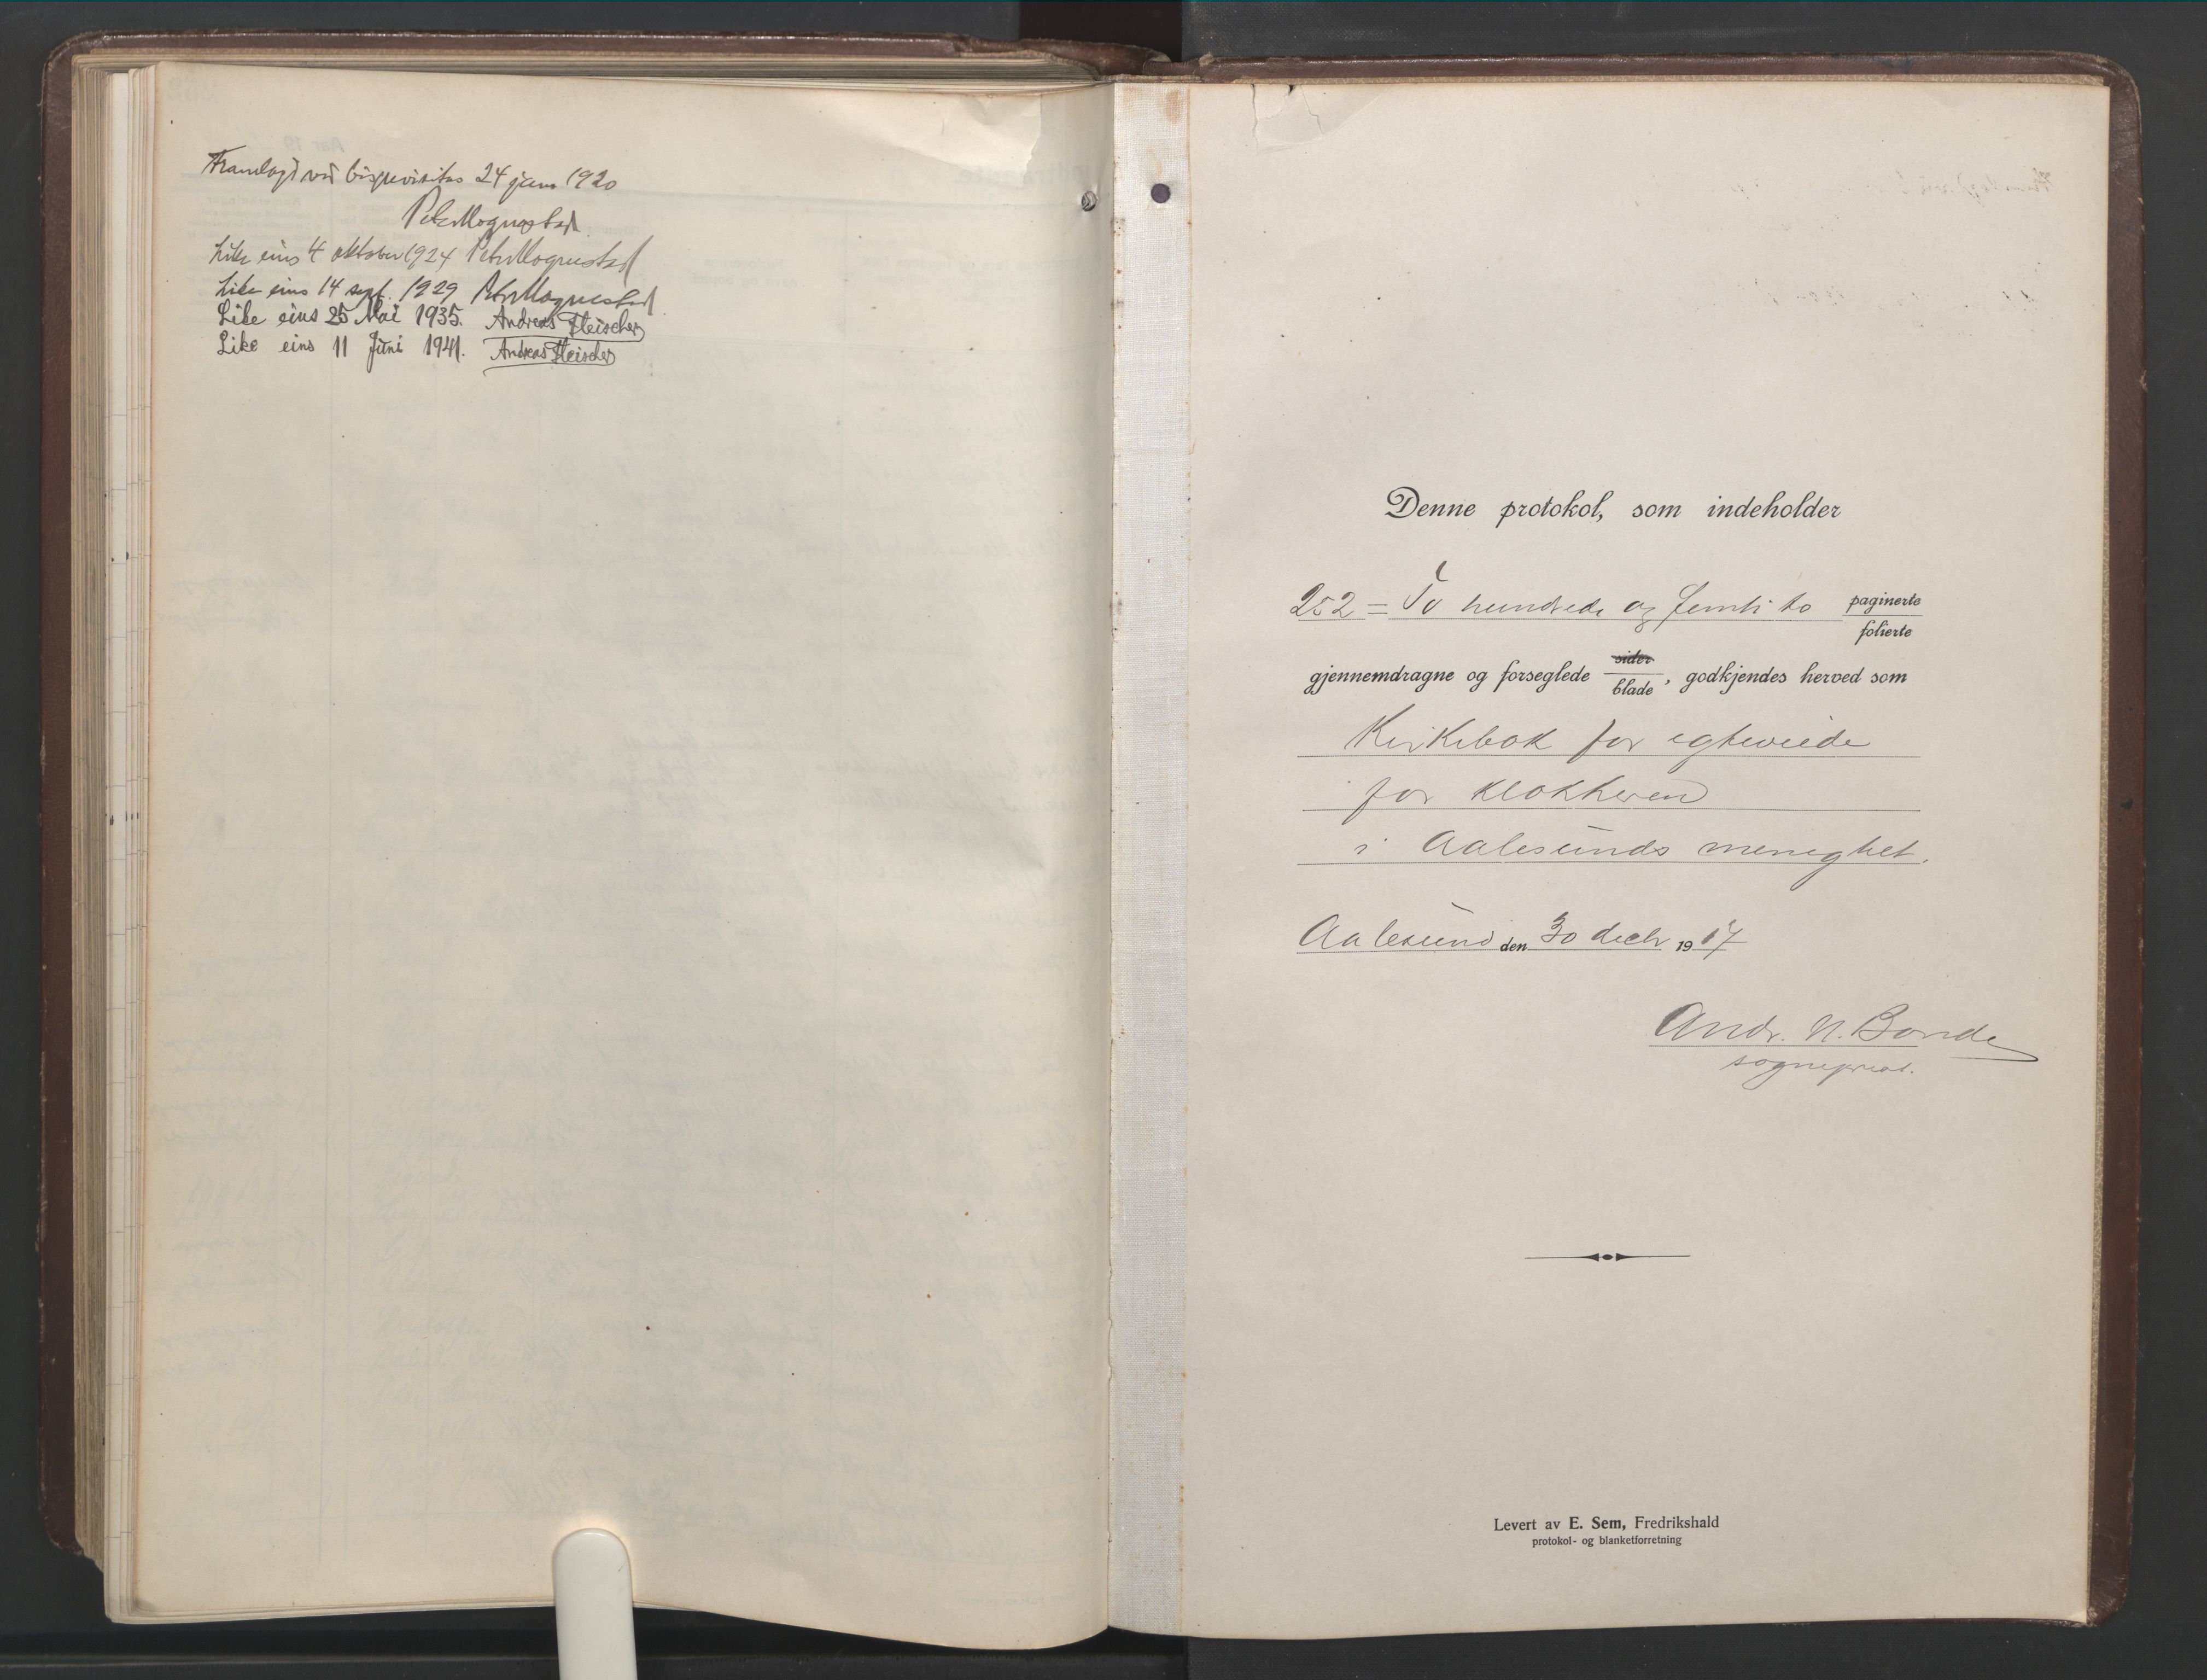 Framlagd ved bispevisitas 24 jan 1920
Peter Hognestad
Like eins 4 oktober 1924 Peter Hognestad
Like eins 14 sept. 1929 Peter Hognestad
Like eins 25 Mai 1935. Andreas Fleischer
Like eins 11 Juni 1941. Andreas Fleischer
Denne protokol, som indeholder
252 = To hundrede og femti to paginerte
folierte
sider
gjennemdragne og forseglede blade, godkjendes herved som
Kirkebok for egteviede
for klokkeren
i Aalesunds menighet.
Aalesund den 30 decbr 1917
Andr. N. Bonde
sogneprest.
Levert av E. Sem, Fredrikshald
protokol- og blanketforretning